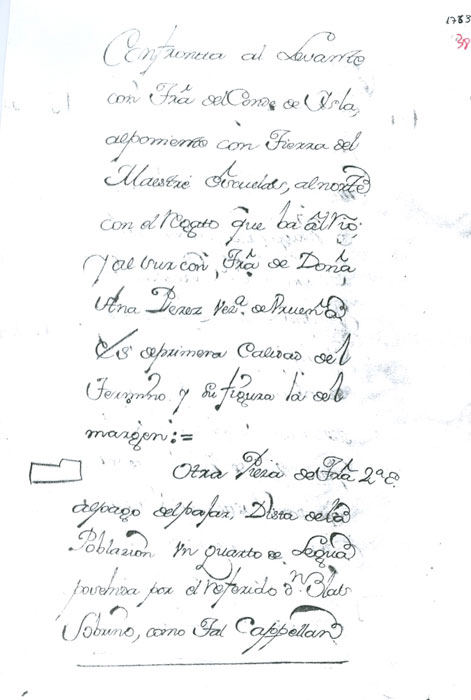 1783
38
Confronta al Levante
con Tra. del Conde de Ysla,
al poniente con Tierra del
Maestre Escuelas, al norte
con el Regato que ba al Rio;
y al sur con Tra. de Doña
Ana Perez, Vez.a de
Es de primera Calidad del
Termino y su figura la del
margen:=
Otra Pieza de Tra. 2.a
al pago del pajar, Dista de la
Poblazion un quarto de Legua
por el referido Dn. Blas
Sobrino, como tal Cappellan